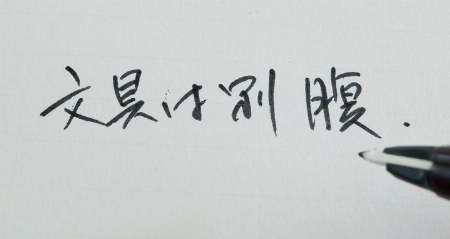 文具は別腹.